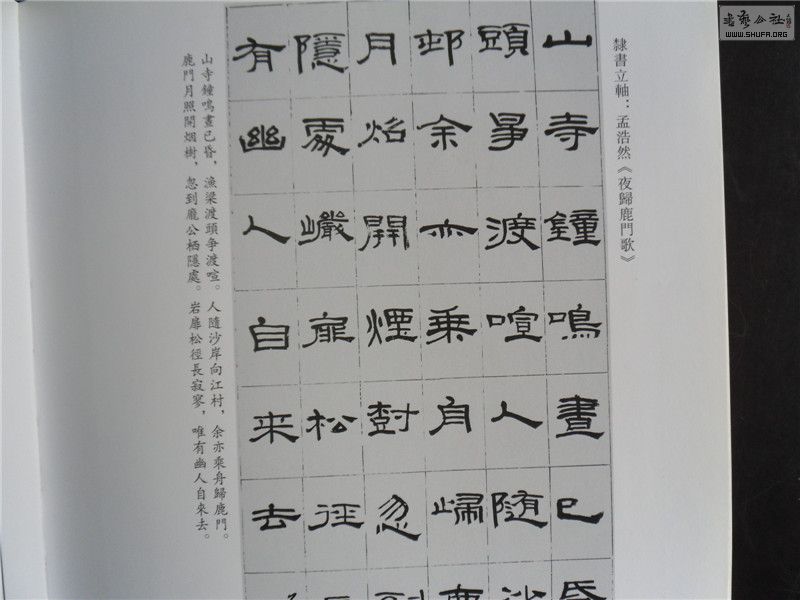 書藝公社
WWW.SHUFA.ORG
隸書立軸：孟浩然《夜歸鹿門歌》
山寺鐘鳴晝已昏
頭爭渡喧人隨沙
邨余亦乗舟歸鹿
月炤開煙樹忽到
隱處巗扉松徑長
有幽人自来去
山寺鐘鳴晝已昏，漁梁渡頭争渡喧。人隨沙岸向江村，余亦乘舟歸鹿門。
鹿門月照開烟樹，忽到龐公栖隱處。岩扉松徑長寂寥，唯有幽人自來去。